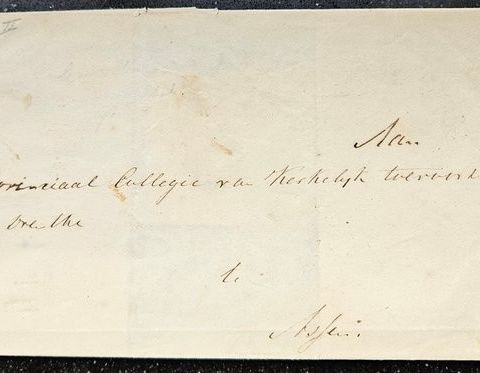 II
Aan
rovinciaal Collegie van Kerkelijk toevoorz
Drenthe
te
Assen.